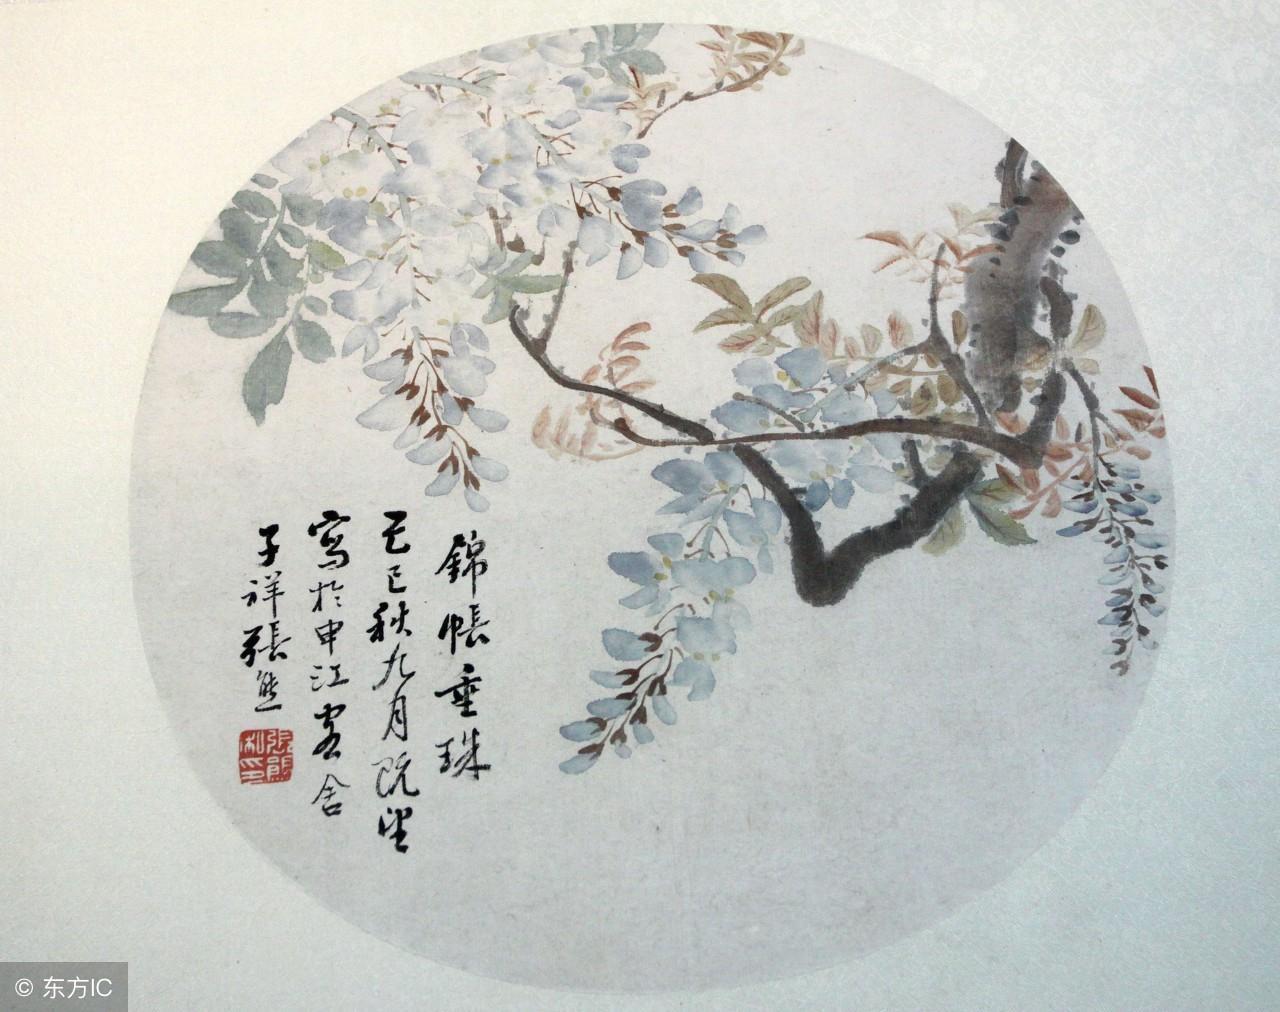 錦帳垂珠
己巳秋九月既望
寫於申江客舍
子祥張熊
© 东方IC